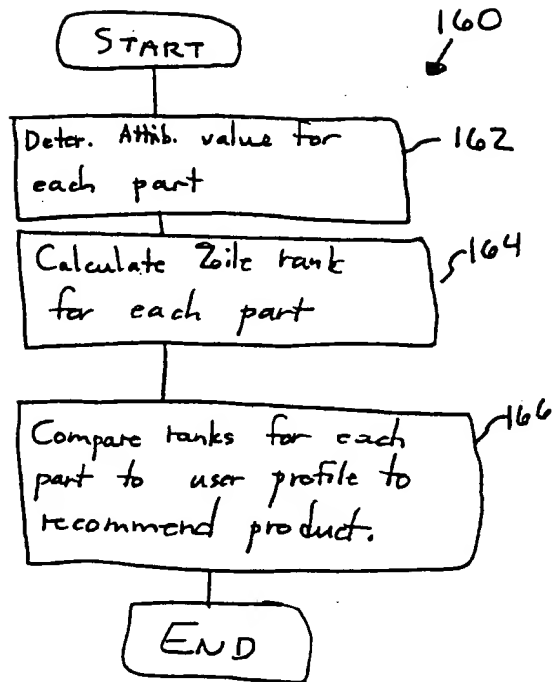 160
START
Deter. Attib. value for
each part
162
Calculate %ile rank
for each part
164
Compare ranks for each
part to user profile to
recommend product.
166
END